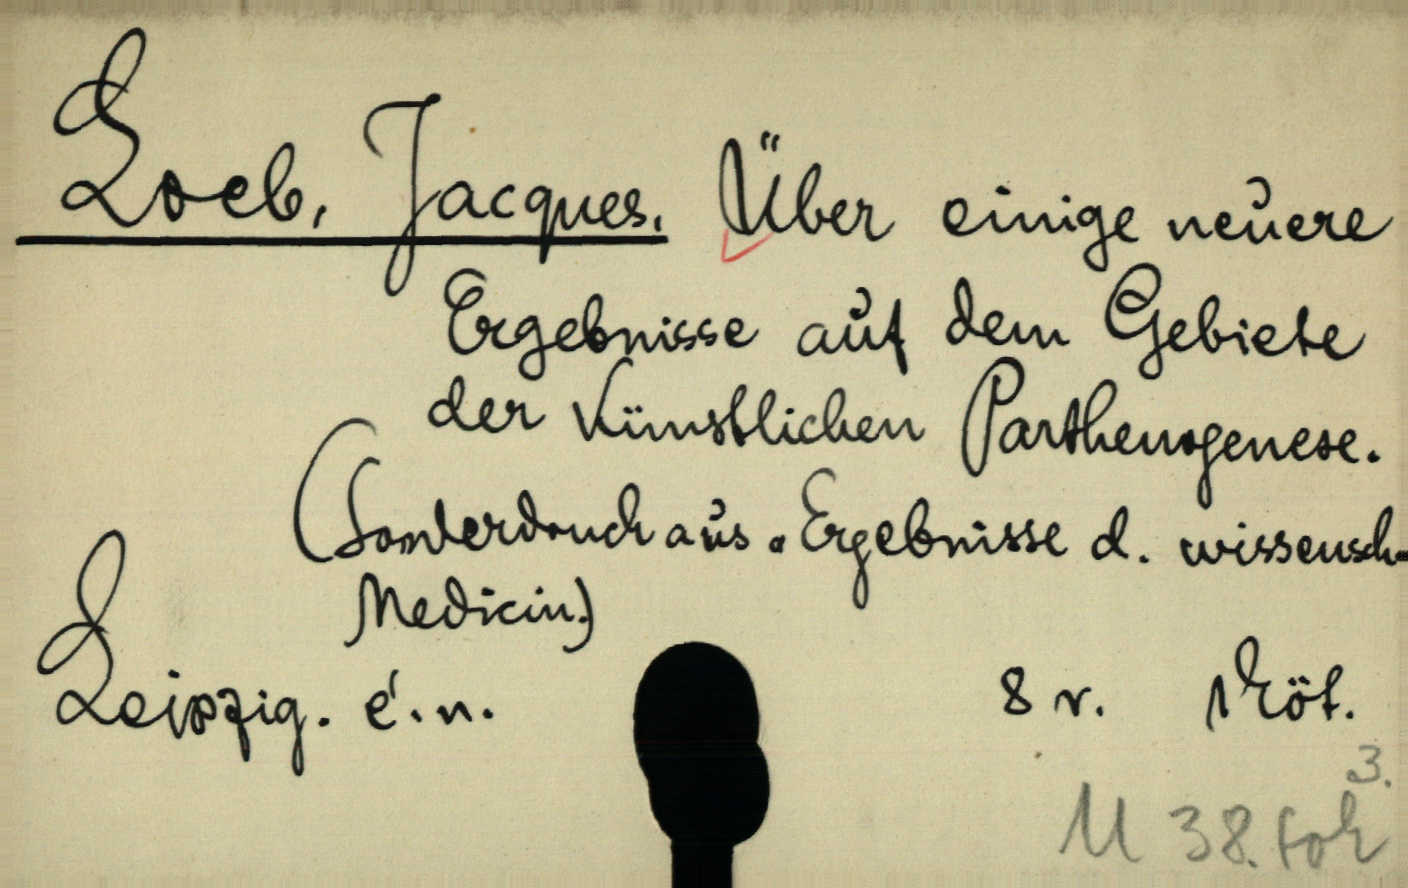 Loeb, Jacques. Über einige neuere
Ergebnisse auf dem Gebiete
der künstlichen Parthenogenese.
(Sonderdruck aus „Ergebnisse d. wissensch.
Medicin.)
Leipzig. é. n. 8 r. Köt.
3.
M 38. sok